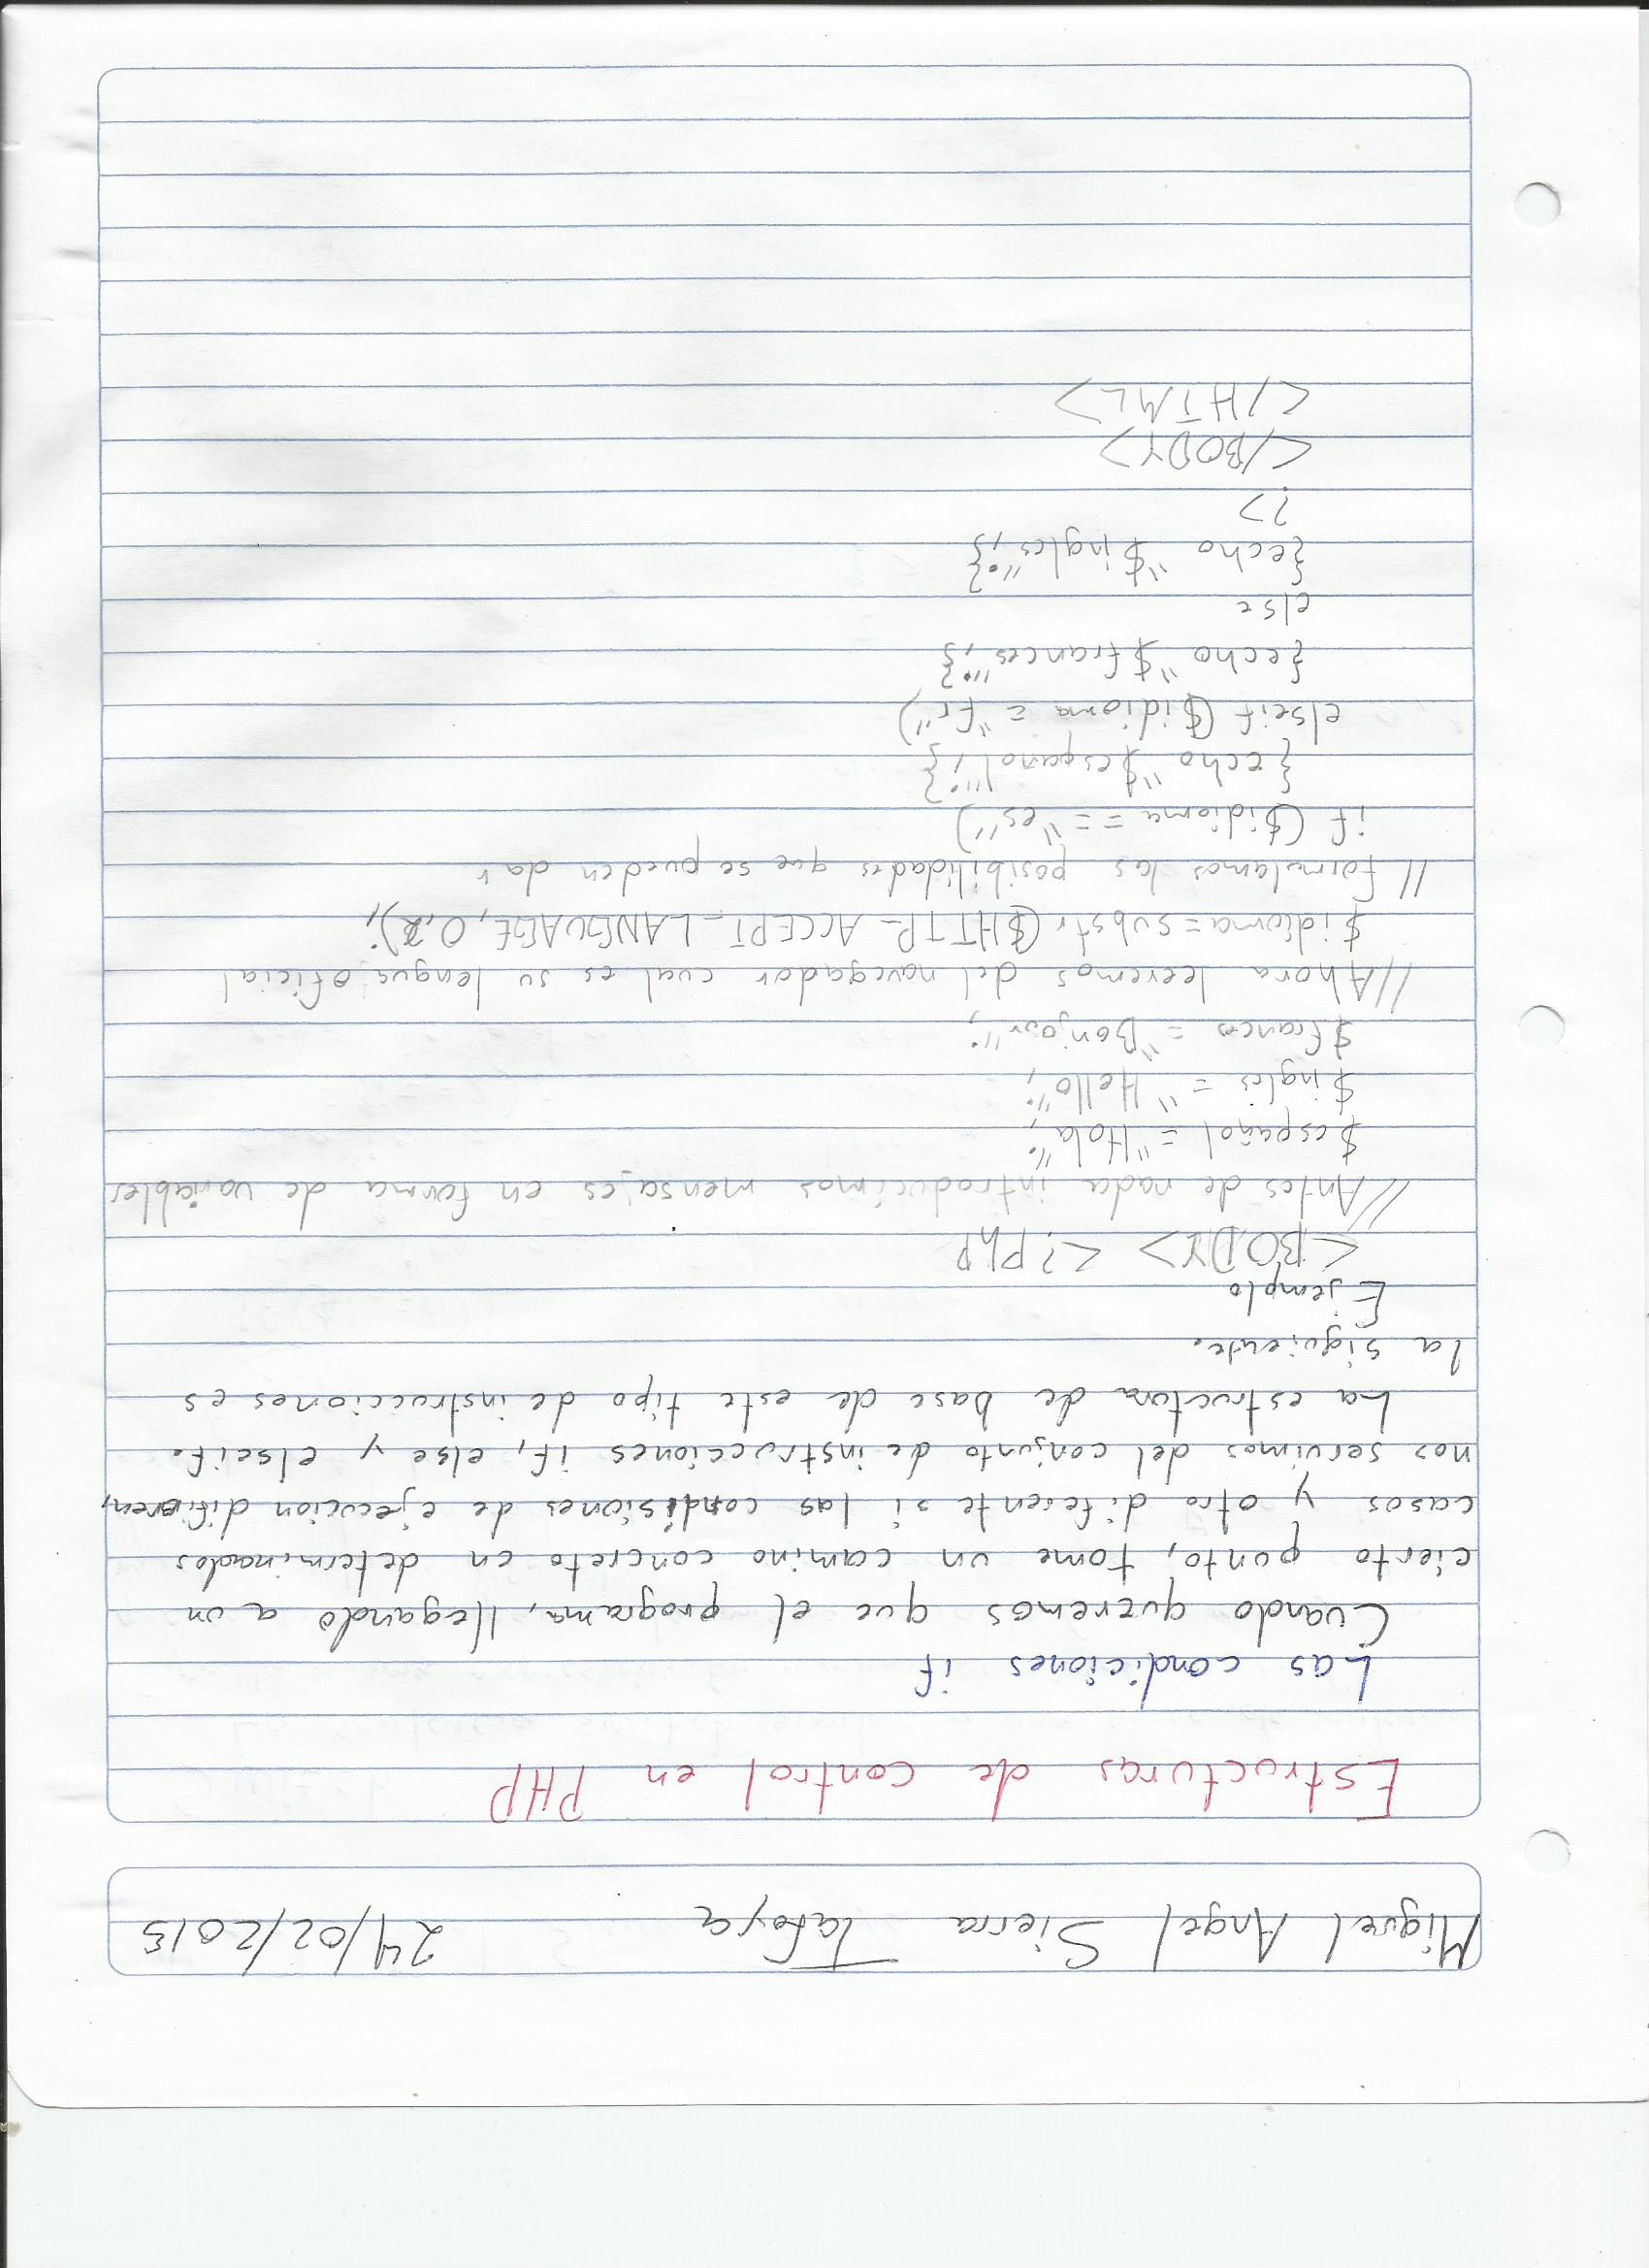 Miguel Angel Sierra Tafoya 24/02/2015
Estructuras de control en PHP
Las condiciones if
Cuando queremos que el programa, llegando a un
cierto punto, tome un camino concreto en determinados
casos y otro diferente si las condisiones de ejecucion difieren,
nos servimos del conjunto de instrucciones if, else y elseif.
La estructura de base de este tipo de instrucciones es
la siguiente.
Ejemplo
<BODY> <?PhP
//Antes de nada introducimos mensajes en forma de variables
$español = "Hola";
$ingles = "Hello";
$frances = "Bonjour";
//Ahora leeremos del navegador cual es su lengua oficial
$idioma=substr($HTTP_ACCEPT_LANGUAGE,0,2);
//formulamos las posibilidades que se pueden dar
if ($idioma == "es")
{echo "$español";}
elseif ($idioma = "fr")
{echo "$frances";}
else
{echo "$ingles";}
?>
</BODY>
</HTML>